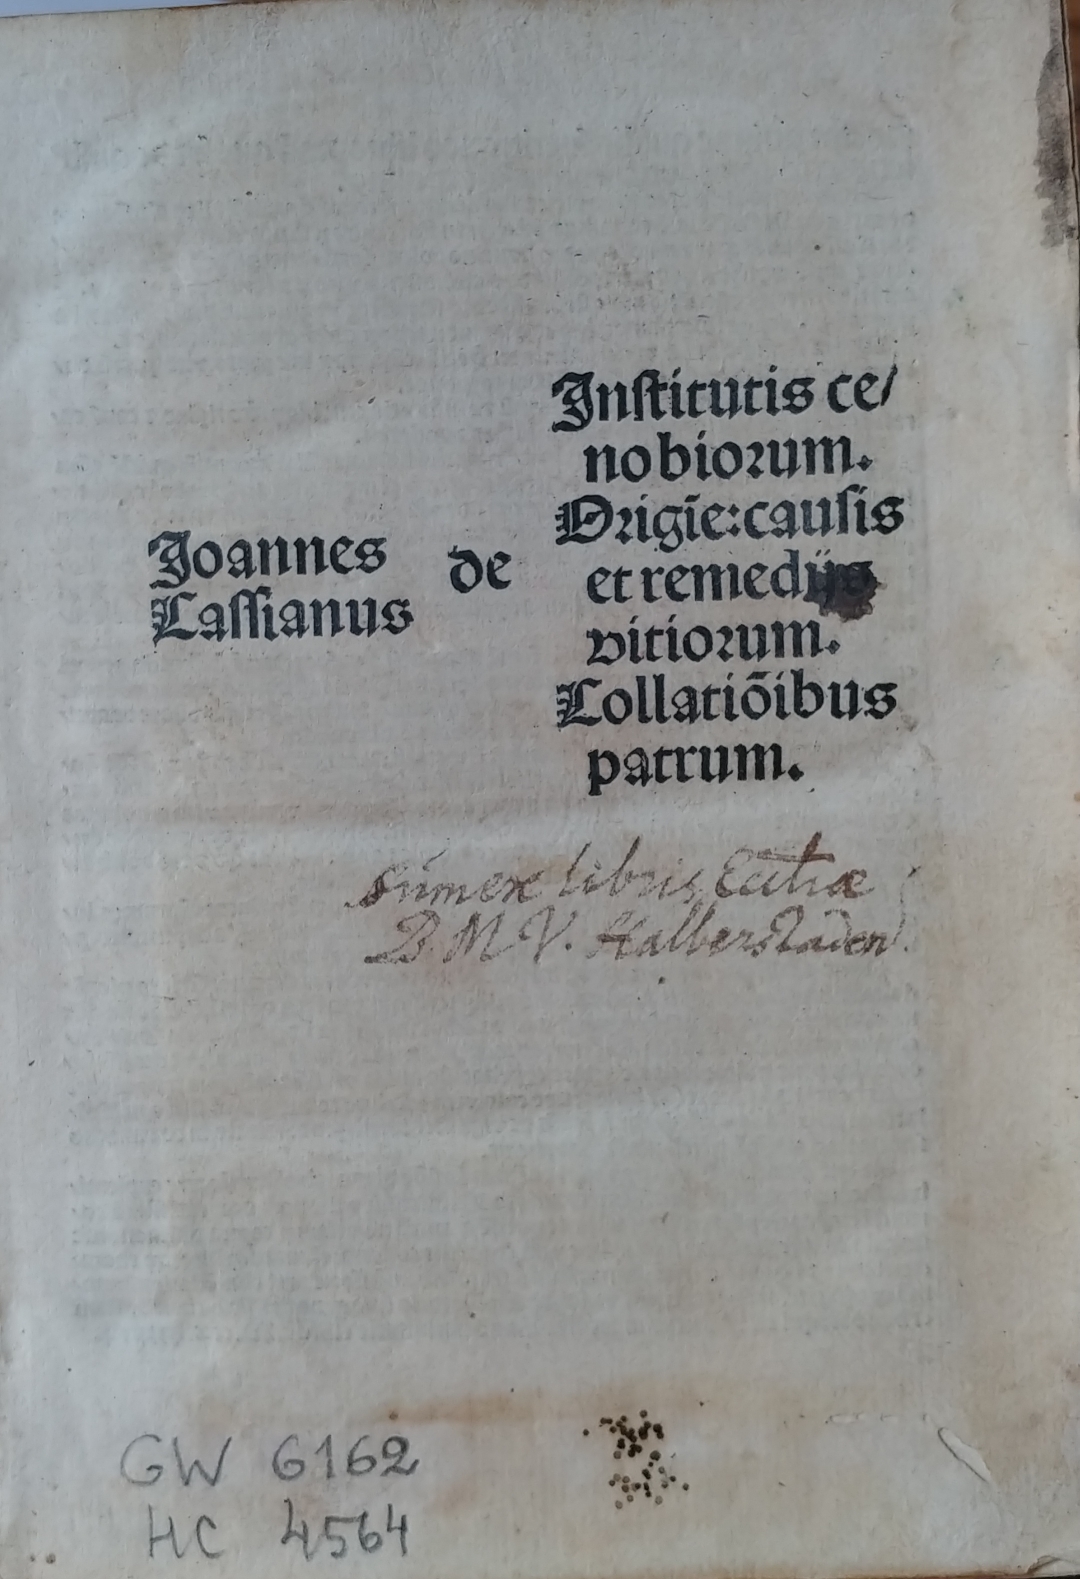 Joannes
Cassianus
de
Institutis ce/
nobiorum.
Origīe: causis
et remedijs
vitiorum.
Collatiōibus
patrum.
sum ex libris Eccliae
B. M. V. Halberstaden.
GW 6162
HC 4564